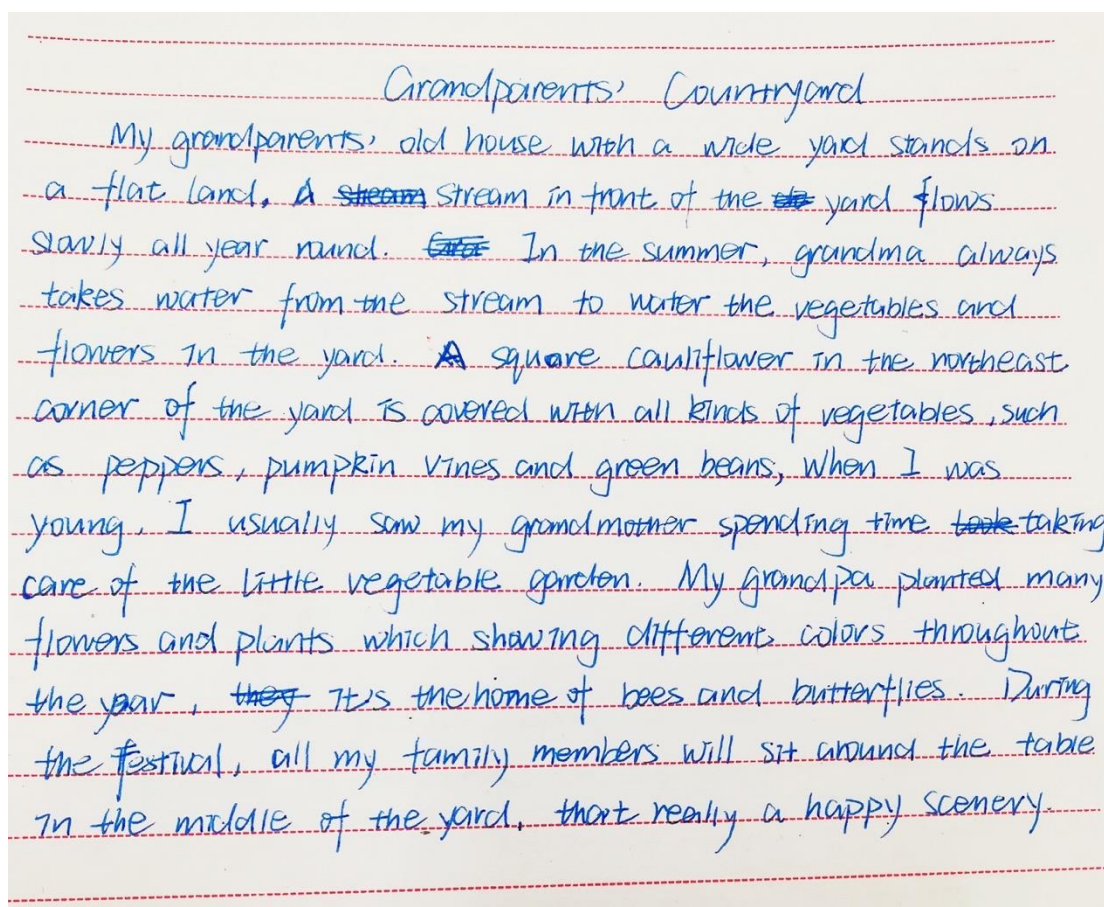 Grandparents' Countryard
My grandparents' old house with a wide yard stands on
a flat land. A stream in front of the yard flows
slowly all year round. In the summer, grandma always
takes water from the stream to water the vegetables and
flowers in the yard. A square cauliflower in the northeast
corner of the yard is covered with all kinds of vegetables, such
as peppers, pumpkin vines and green beans, when I was
young, I usually saw my grandmother spending time taking
care of the little vegetable garden. My grandpa planted many
flowers and plants which showing different colors throughout
the year, It's the home of bees and butterflies. During
the festival, all my family members will sit around the table
in the middle of the yard, that really a happy scenery.